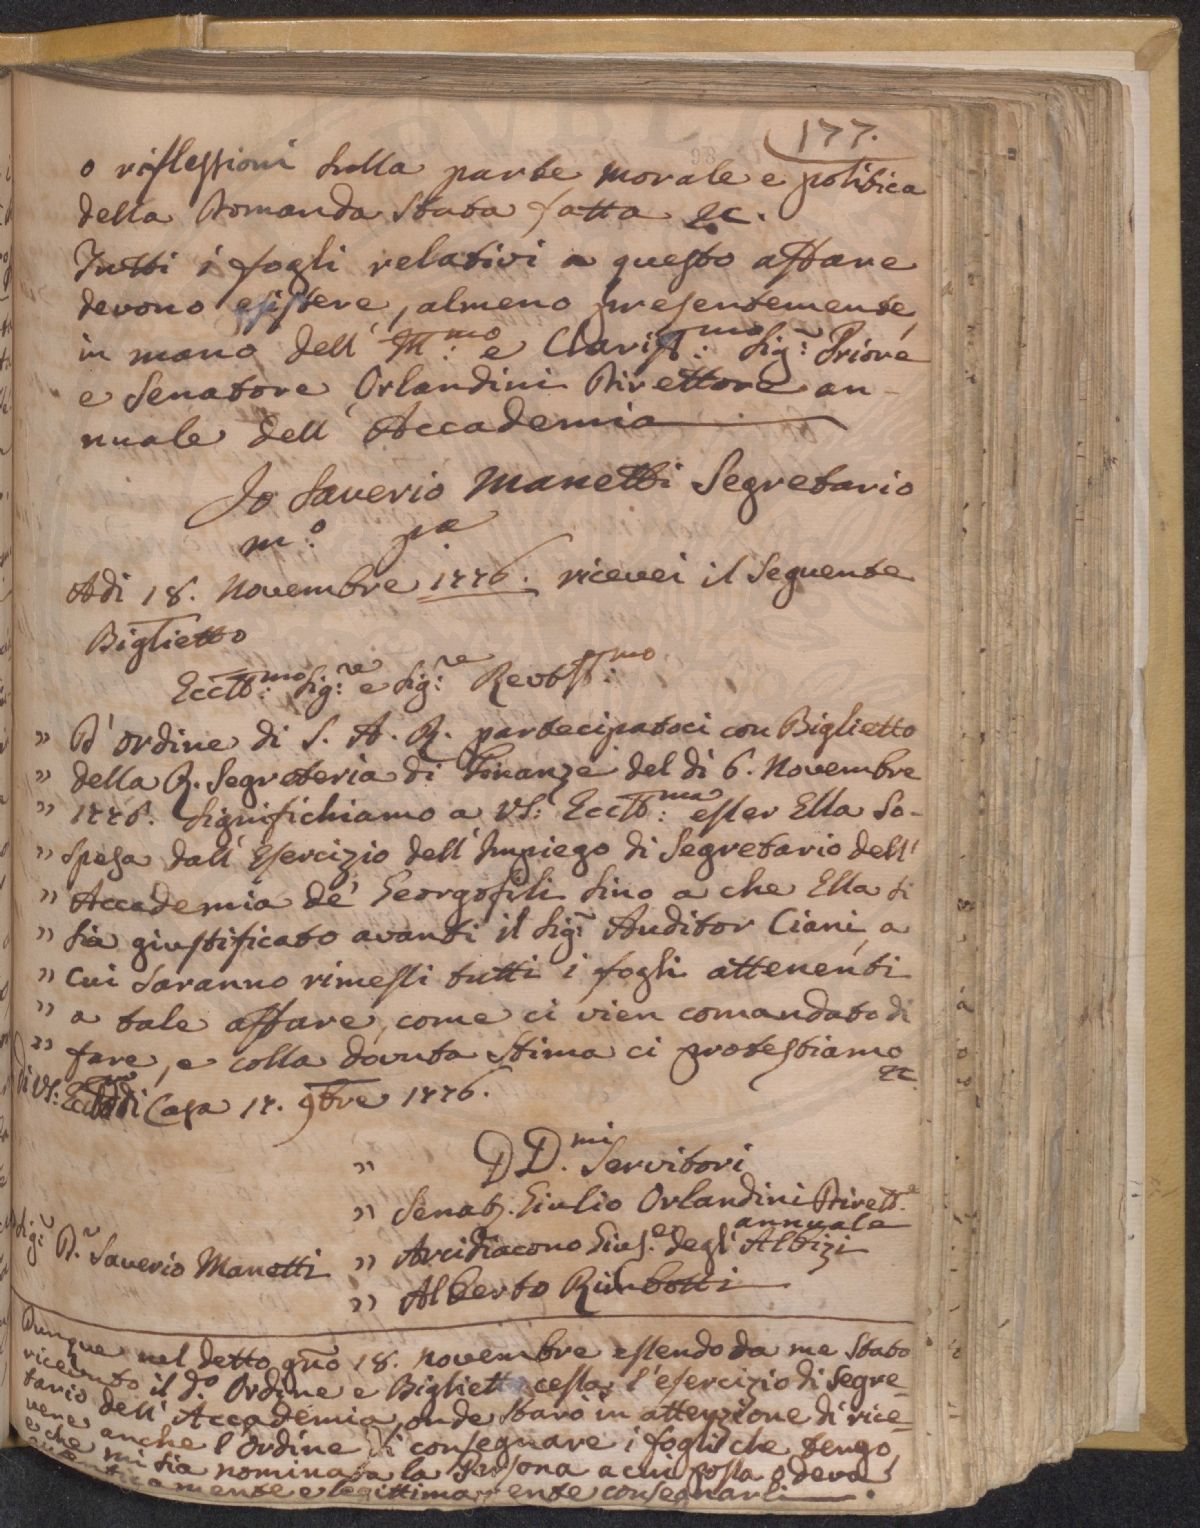 177.
o riflessioni sulla parte morale e politica
della Domanda stata fatta &c.
Tutti i fogli relativi a questo affare
devono esistere, almeno presentemente,
in mano dell' Ill:mo e Clariss:mo Sig:r Priore
e Senatore Orlandini Direttore an-
nuale dell' Accademia
Io Saverio Manetti Segretario
m:o pa
Adi 18. Novembre 1776. ricevei il seguente
Biglietto
Eccll:mo Sig:re e Sig:re
" D' ordine di S. A. R. partecipatoci con Biglietto
" della R. Segreteria di Finanze del dì 6. Novembre
" 1776. significhiamo a VS: Eccll:ma esser Ella so-
" spesa dall' Esercizio dell' Impiego di Segretario dell'
" Accademia de' Georgofili sino a che Ella si
" sia giustificato avanti il Sig:r Auditor Ciani, a
" cui saranno rimessi tutti i fogli attenenti
" a tale affare, come ci vien comandato di
" fare, e colla dovuta stima ci protestiamo
&c.
Di VS: di Casa 17. 9bre 1776.
" DD.mi Servitori
" Senat. Giulio Orlandini Dirett.e
annuale
" Arcidiacono Gius.e degl' Albizi
Sig:r D.r Saverio Manetti
" Alberto Rimbotti
Dunque nel detto gno 18. Novembre essendo da me stato
ricevuto il d.o Ordine e Bigliett cessa l'esercizio di Segre-
tario dell' Accademia, onde starò in attenzione di rice-
vere anche l'ordine di consegnare i fogli che tengo,
e che mi sia nominata la Persona a cui possa o deva
autenticamente e legittimamente consegnarli.